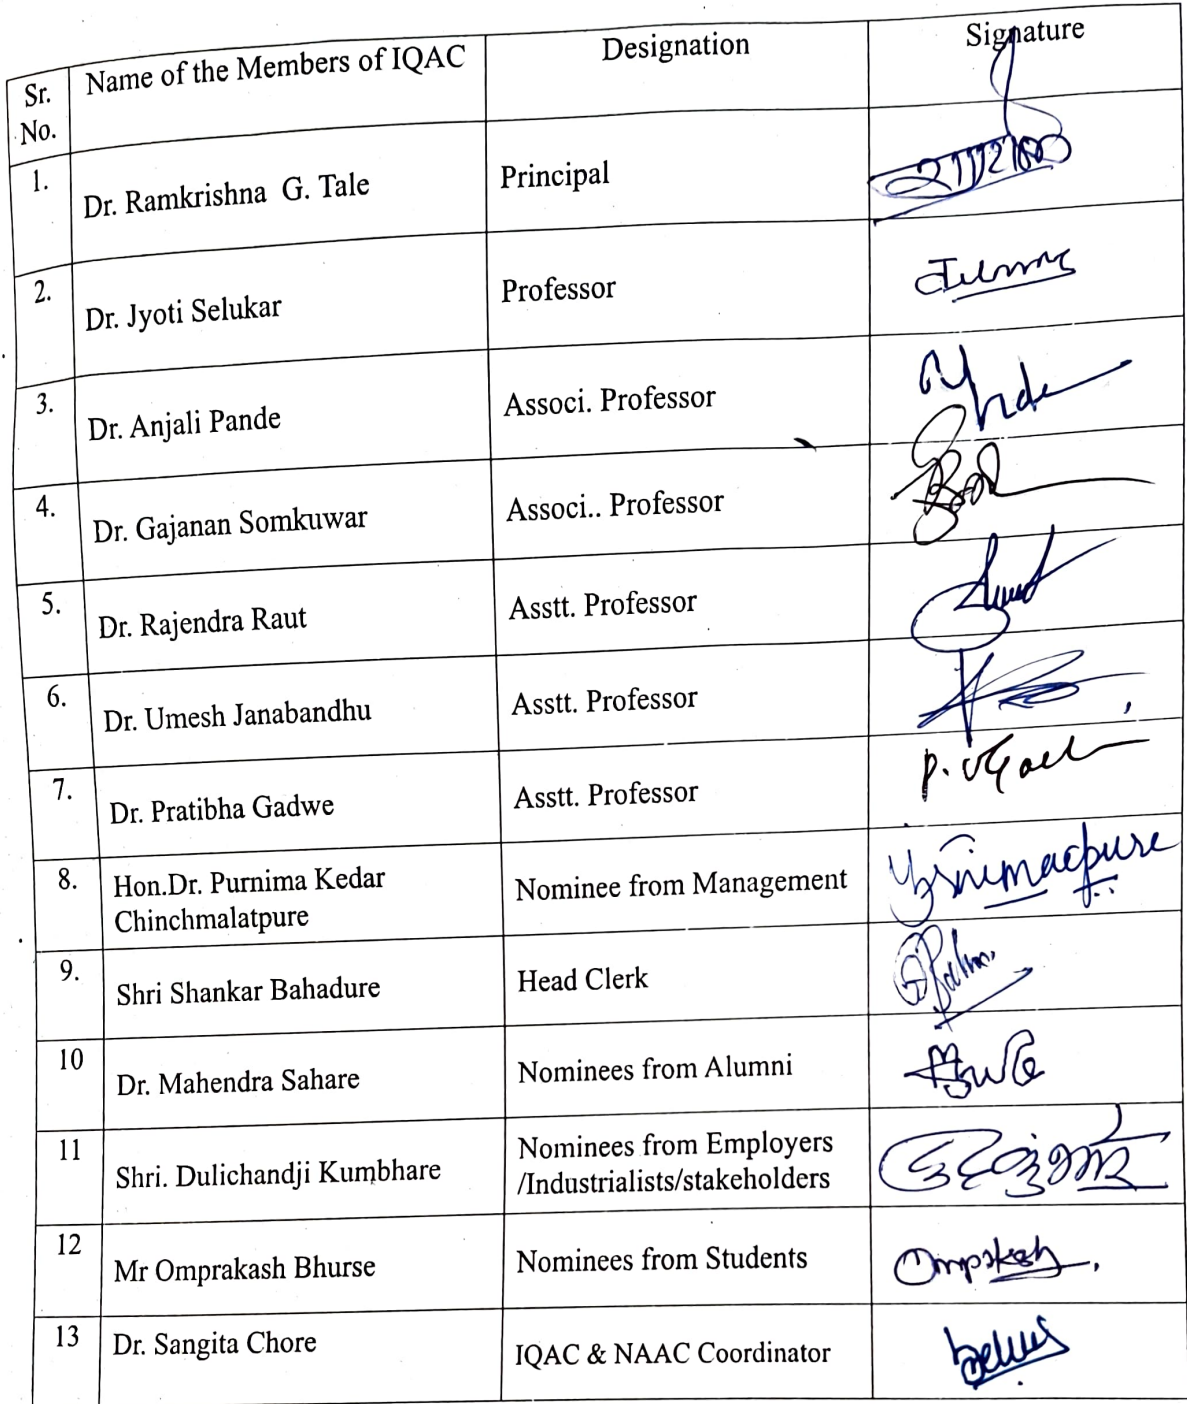 Sr. No. Name of the Members of IQAC Designation Signature
1. Dr. Ramkrishna G. Tale Principal
2. Dr. Jyoti Selukar Professor
3. Dr. Anjali Pande Associ. Professor
4. Dr. Gajanan Somkuwar Associ.. Professor
5. Dr. Rajendra Raut Asstt. Professor
6. Dr. Umesh Janabandhu Asstt. Professor
7. Dr. Pratibha Gadwe Asstt. Professor
8. Hon.Dr. Purnima Kedar Nominee from Management
Chinchmalatpure
9. Shri Shankar Bahadure Head Clerk
10 Dr. Mahendra Sahare Nominees from Alumni
11 Shri. Dulichandji Kumbhare Nominees from Employers
/Industrialists/stakeholders
12 Mr Omprakash Bhurse Nominees from Students
13 Dr. Sangita Chore IQAC & NAAC Coordinator